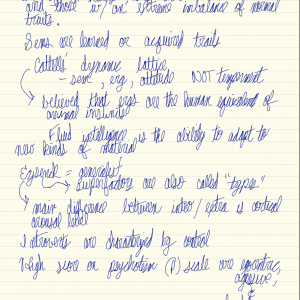 and those w/ an extreme imbalance of normal
traits.
Sems are learned or acquired traits
Cattells dynamic lattice
- sem, erg, attitude NOT temperment
believed that ergs are the human equivalent of
animal instincts
Fluid intelligence is the ability to adapt to
new kinds of material
Eysenck = generalist
superfactors are also called "types"
main difference between intro/extra is cortical
arousal level
Introverts are characterized by control
High score on psychotism (P) scale are egocentric,
aggressive,